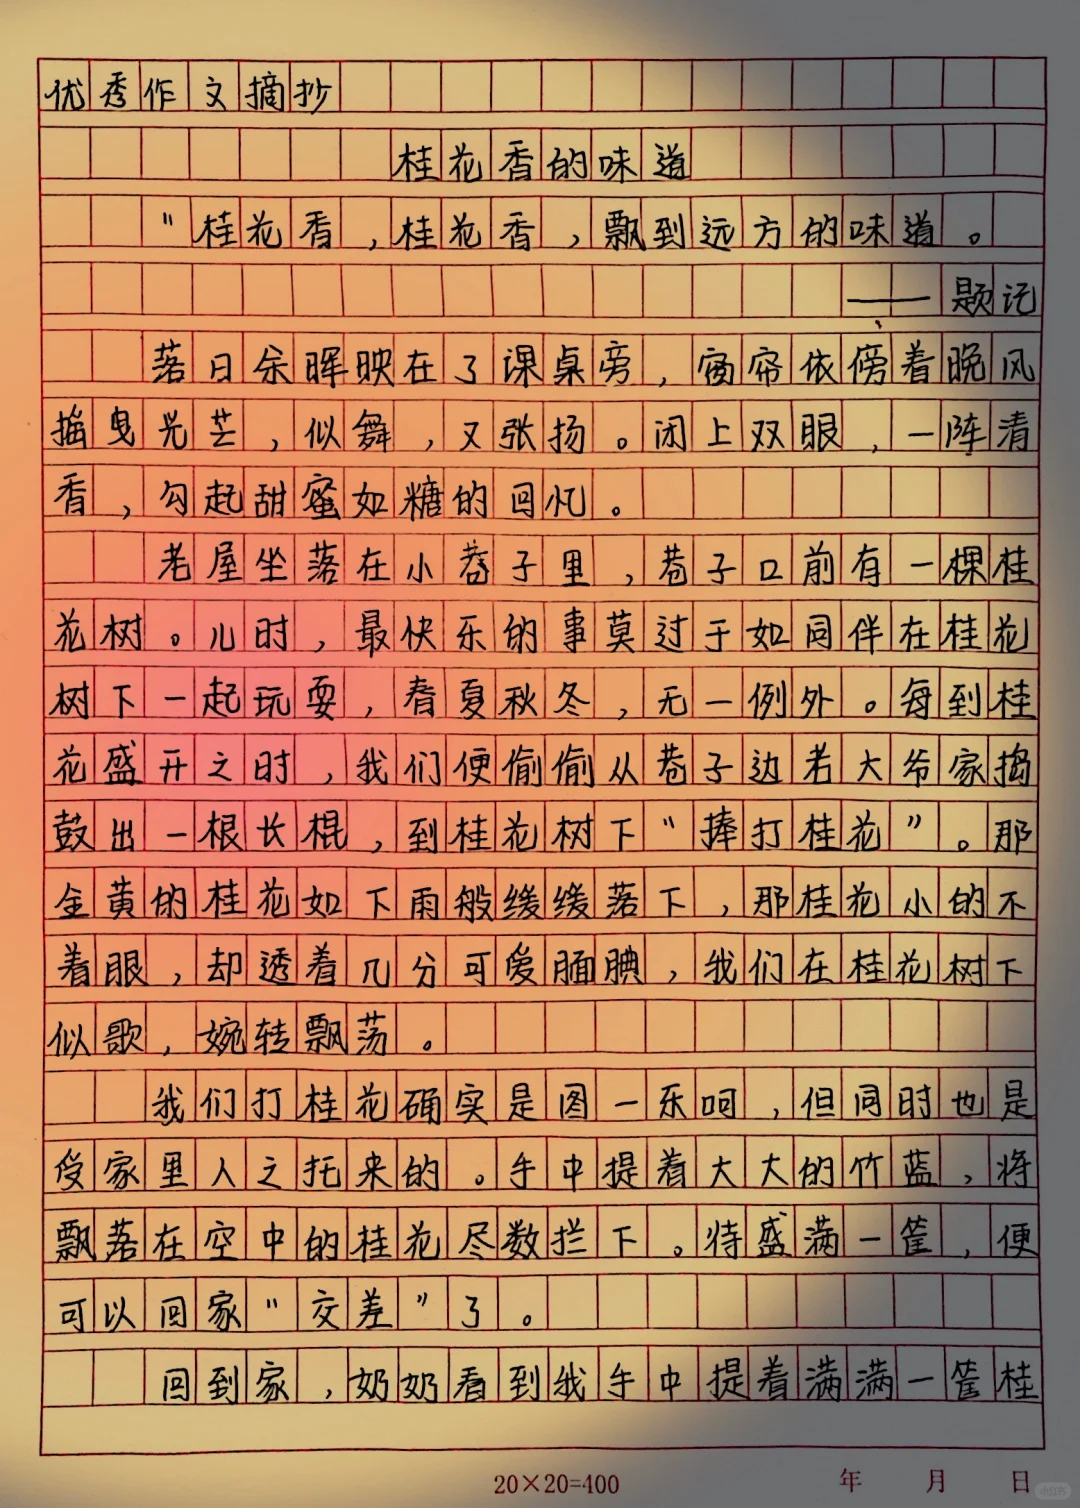 优秀作文摘抄
桂花香的味道
"桂花香,桂花香,飘到远方的味道。
——题记
落日余晖映在了课桌旁,窗帘依傍着晚风
摇曳光芒,似舞,又张扬。闭上双眼,一阵清
香,勾起甜蜜如糖的回忆。
老屋坐落在小巷子里,巷子口前有一棵桂
花树。儿时,最快乐的事莫过于如同伴在桂花
树下一起玩耍,春夏秋冬,无一例外。每到桂
花盛开之时,我们便偷偷从巷子边老大爷家捣
鼓出一根长棍,到桂花树下“捧打桂花”。那
金黄的桂花如下雨般缓缓落下,那桂花小的不
着眼,却透着几分可爱腼腆,我们在桂花树下
似歌,婉转飘荡。
我们打桂花确实是图一乐呵,但同时也是
受家里人之托来的。手中提着大大的竹蓝,将
飘落在空中的桂花尽数拦下。待盛满一筐,便
可以回家“交差”了。
回到家,奶奶看到我手中提着满满一筐桂
20×20=400 年 月 日
小红书